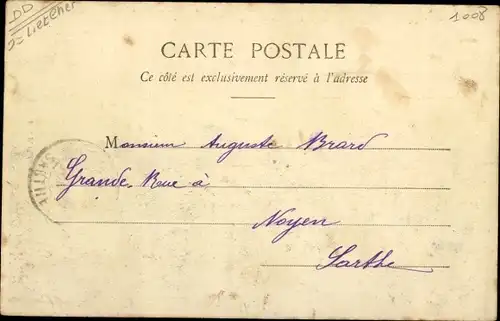 DD
1008
CARTE POSTALE
Ce côté est exclusivement réservé à l'adresse
Monsieur Auguste Brard
Grande Rue à
Noyen
Sarthe